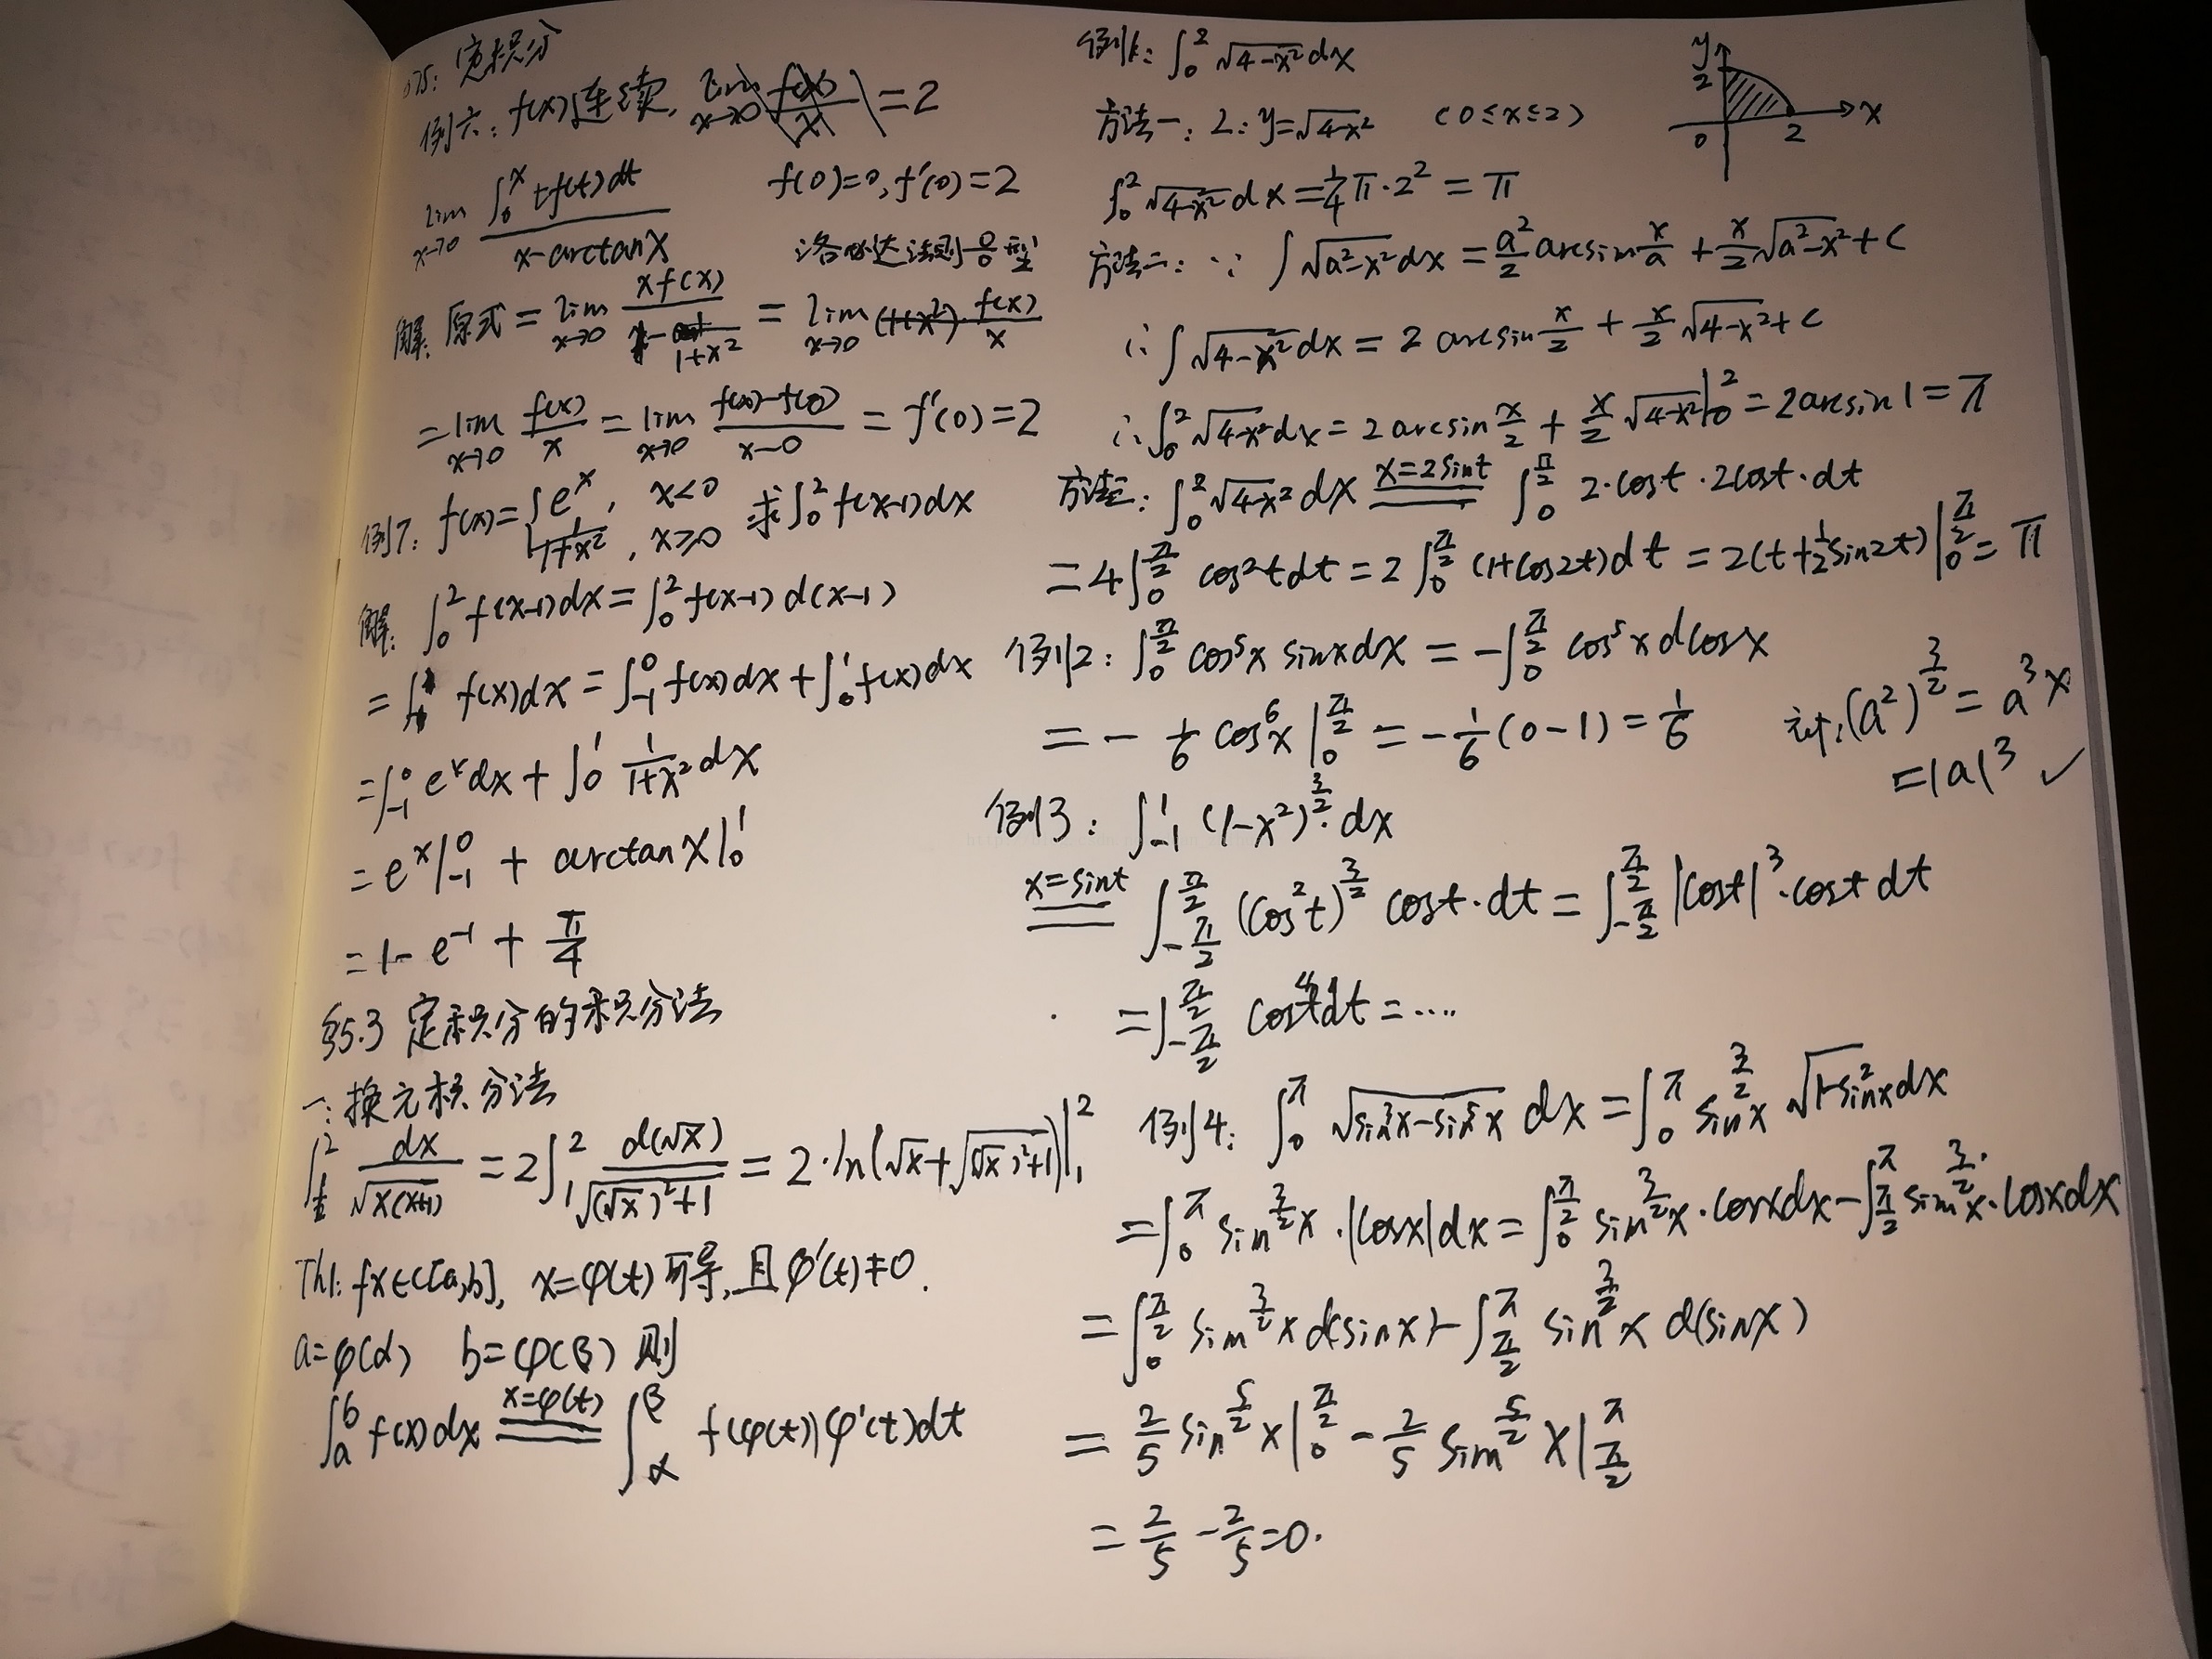 §5: 定积分
例六: f(x)连续, lim x→0 f(x)/x = 2
f(0)=0, f'(0)=2
lim x→0 ∫₀ˣ tf(t)dt / (x-arctanx)
洛必达法则 0/0 型
解: 原式 = lim x→0 xf(x) / (1 - 1/(1+x²)) = lim x→0 (1+x²)·f(x)/x
= lim x→0 f(x)/x = lim x→0 (f(x)-f(0))/(x-0) = f'(0) = 2
例7: f(x) = { eˣ, x<0 ; 1/(1+x²), x≥0 求 ∫₀² f(x-1)dx
解: ∫₀² f(x-1)dx = ∫₀² f(x-1)d(x-1)
= ∫₋₁¹ f(x)dx = ∫₋₁⁰ f(x)dx + ∫₀¹ f(x)dx
= ∫₋₁⁰ eˣdx + ∫₀¹ 1/(1+x²) dx
= eˣ|₋₁⁰ + arctanx|₀¹
= 1 - e⁻¹ + π/4
§5.3 定积分的积分法
一: 换元积分法
∫₁² dx/√(x(x+1)) = 2∫₁² d(√x)/√((√x)²+1) = 2·ln(√x+√((√x)²+1))|₁²
Th1: fx∈C[a,b], x=φ(t) 可导, 且φ'(t)≠0.
a=φ(α) b=φ(β) 则
∫ₐᵇ f(x)dx =(x=φ(t))= ∫_α^β f(φ(t))φ'(t)dt
例1: ∫₀² √(4-x²) dx
y 2 0 2 x
方法一: L: y=√(4-x²) (0≤x≤2)
∫₀² √(4-x²) dx = 1/4 π·2² = π
方法二: ∵ ∫√(a²-x²) dx = a²/2 arcsin x/a + x/2 √(a²-x²) + C
∴ ∫√(4-x²) dx = 2 arcsin x/2 + x/2 √(4-x²) + C
∴ ∫₀² √(4-x²) dx = 2 arcsin x/2 + x/2 √(4-x²)|₀² = 2arcsin1 = π
方法三: ∫₀² √(4-x²) dx =(x=2sint)= ∫₀^(π/2) 2·cost·2cost·dt
= 4∫₀^(π/2) cos²tdt = 2∫₀^(π/2) (1+cos2t)dt = 2(t+1/2 sin2t)|₀^(π/2) = π
例2: ∫₀^(π/2) cos⁵x sinxdx = -∫₀^(π/2) cos⁵x dcosx
= - 1/6 cos⁶x|₀^(π/2) = -1/6 (0-1) = 1/6
注: (a²)^(3/2) = a³ ×
= |a|³ ✓
例3: ∫₋₁¹ (1-x²)^(3/2) · dx
=(x=sint)= ∫_(-π/2)^(π/2) (cos²t)^(3/2) cost·dt = ∫_(-π/2)^(π/2) |cost|³·cost dt
= ∫_(-π/2)^(π/2) cos⁴tdt = ····
例4: ∫₀^π √(sin³x-sin⁵x) dx = ∫₀^π sin^(3/2)x √(1-sin²x) dx
= ∫₀^π sin^(3/2)x·|cosx|dx = ∫₀^(π/2) sin^(3/2)x·cosxdx - ∫_(π/2)^π sin^(3/2)x·cosxdx
= ∫₀^(π/2) sin^(3/2)x d(sinx) - ∫_(π/2)^π sin^(3/2)x d(sinx)
= 2/5 sin^(5/2)x|₀^(π/2) - 2/5 sin^(5/2)x|_(π/2)^π
= 2/5 - 2/5 = 0.